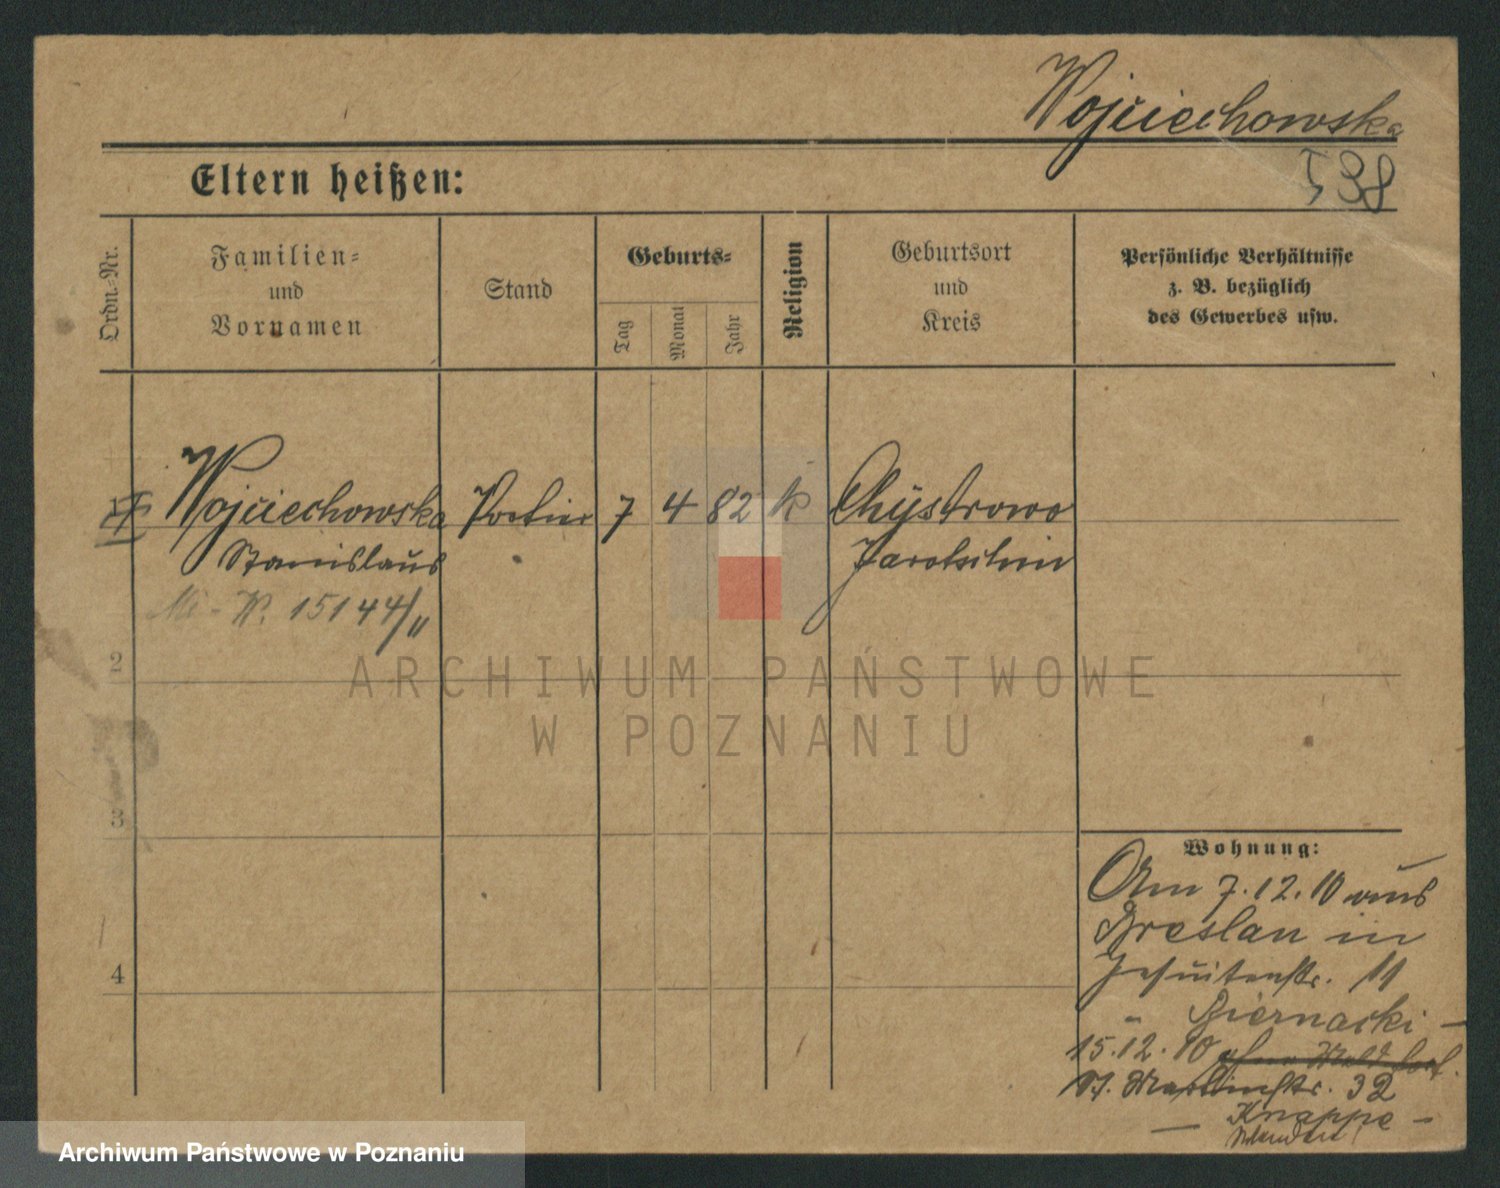 Wojciechowska
538
Eltern heißen:
Ordn.-Nr.
Familien-
und
Vornamen
Stand
Geburts-
Tag
Monat
Jahr
Religion
Geburtsort
und
Kreis
Persönliche Verhältnisse
z. B. bezüglich
des Gewerbes usw.
Wojciechowska Portier 7 4 82 k Chystrowo
Stanislaus Jarotschin
W. 15144/11
2
3
4
ARCHIWUM PAŃSTWOWE
W POZNANIU
Wohnung:
Am 7.12.10 aus
Breslau in
Jesuitenstr. 11
- Biernacki -
15.12.10
St. Martinstr. 32
- Knappe -
Archiwum Państwowe w Poznaniu